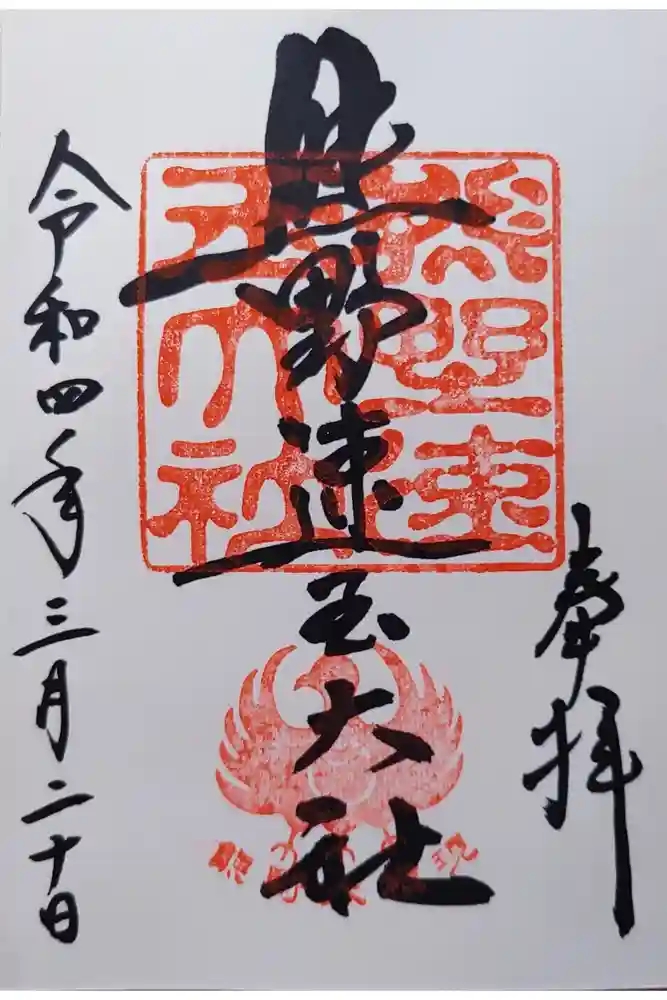 奉拝
熊野速玉大社
熊野速玉大社
令和四年三月二十日